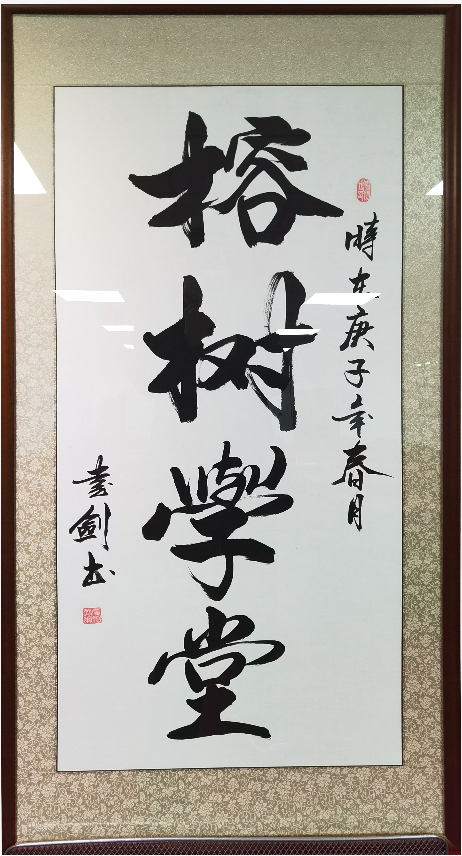 時在庚子年春月
榕树學堂
書劍书